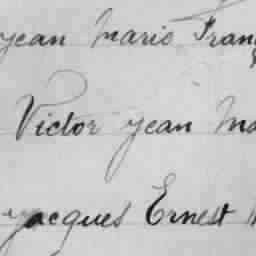 Jean Marie Fran
Victor Jean Ma
Jacques Ernest